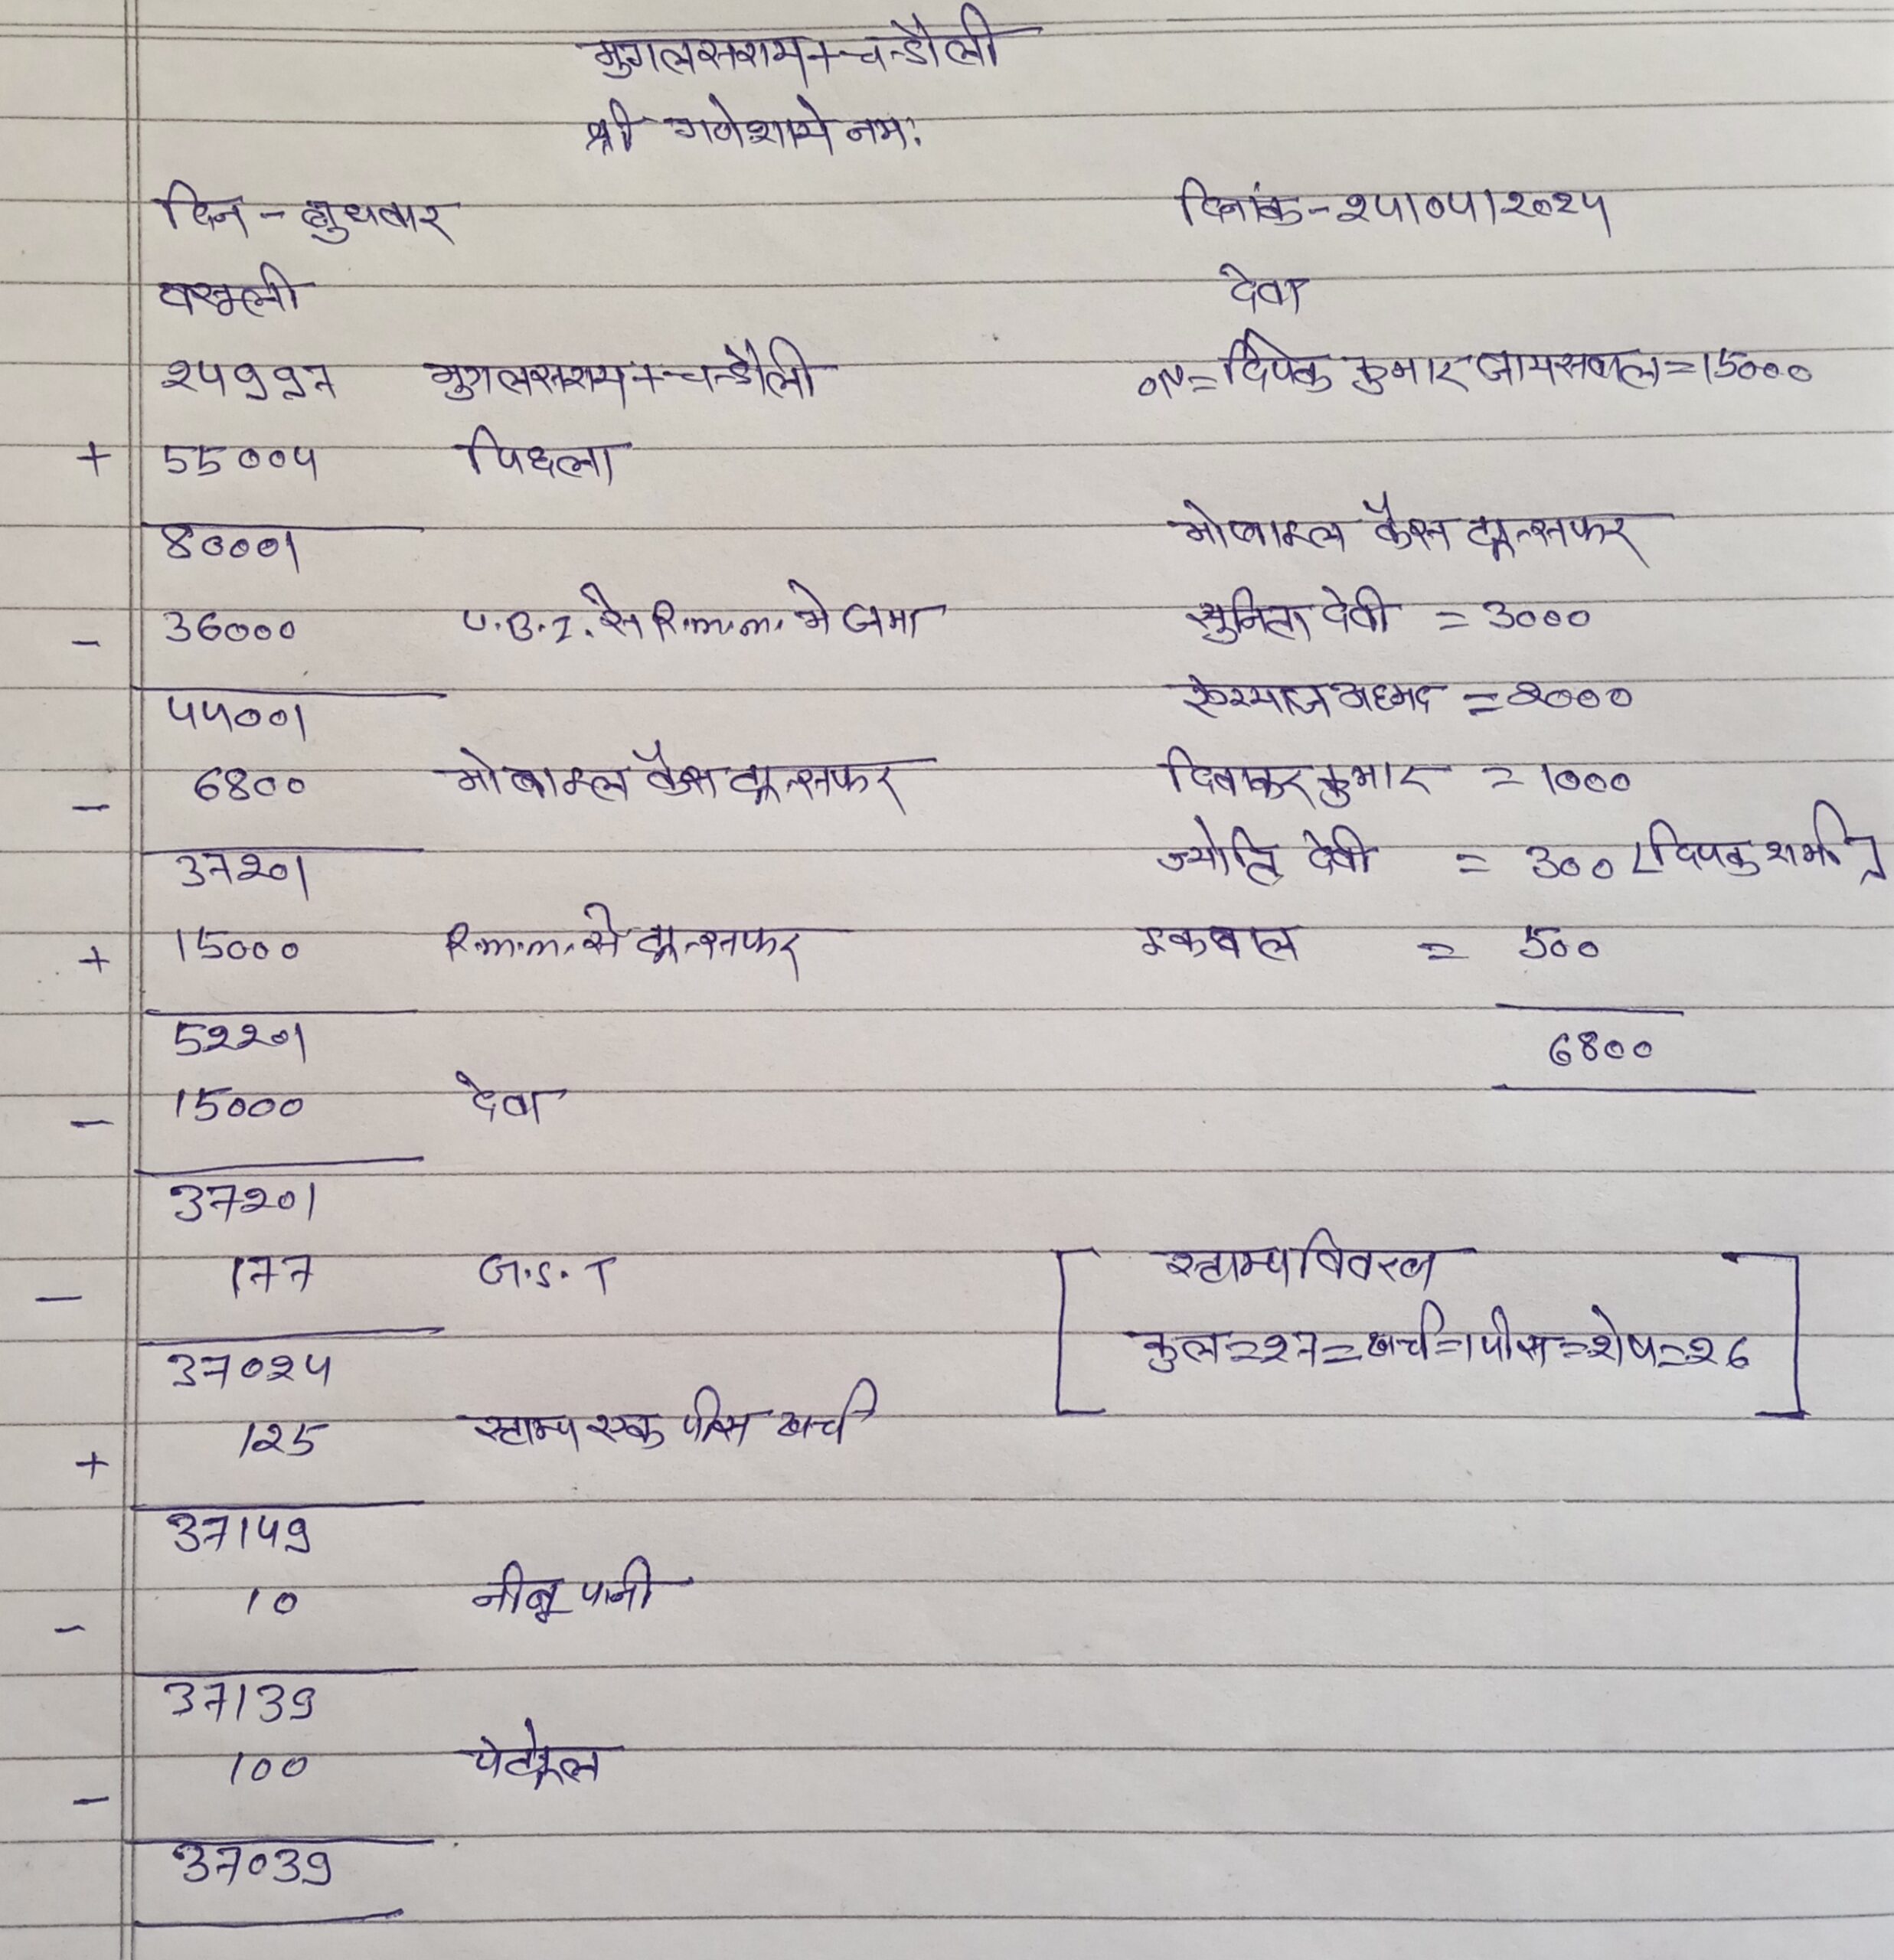 मुगलसराय + चन्डौली
श्री गणेशाये नमः
दिन - बुधवार दिनांक - 24/04/2024
वसूली देवा
24997 मुगलसराय + चन्डौली 01 = दिपक कुमार जायसवाल = 15000
+ 55004 पिछला
80001 मोबाइल कैस ट्रान्सफर
- 36000 U.B.I. से R.m.m. मे जमा सुनिता देवी = 3000
44001 अहमद = 2000
- 6800 मोबाइल कैस ट्रान्सफर दिवाकर कुमार = 1000
37201 ज्योति देवी = 300 [दिपक शर्मा]
+ 15000 R.m.m. से ट्रान्सफर इकबाल = 500
52201 6800
- 15000 देवा
37201
- 177 G.S.T [स्टाम्प विवरण
37024 कुल = 27 = खर्च = 1 पीस = शेष = 26]
+ 125 स्टाम्प एक पीस खर्च
37149
- 10 नीबू पानी
37139
- 100 पेट्रोल
37039